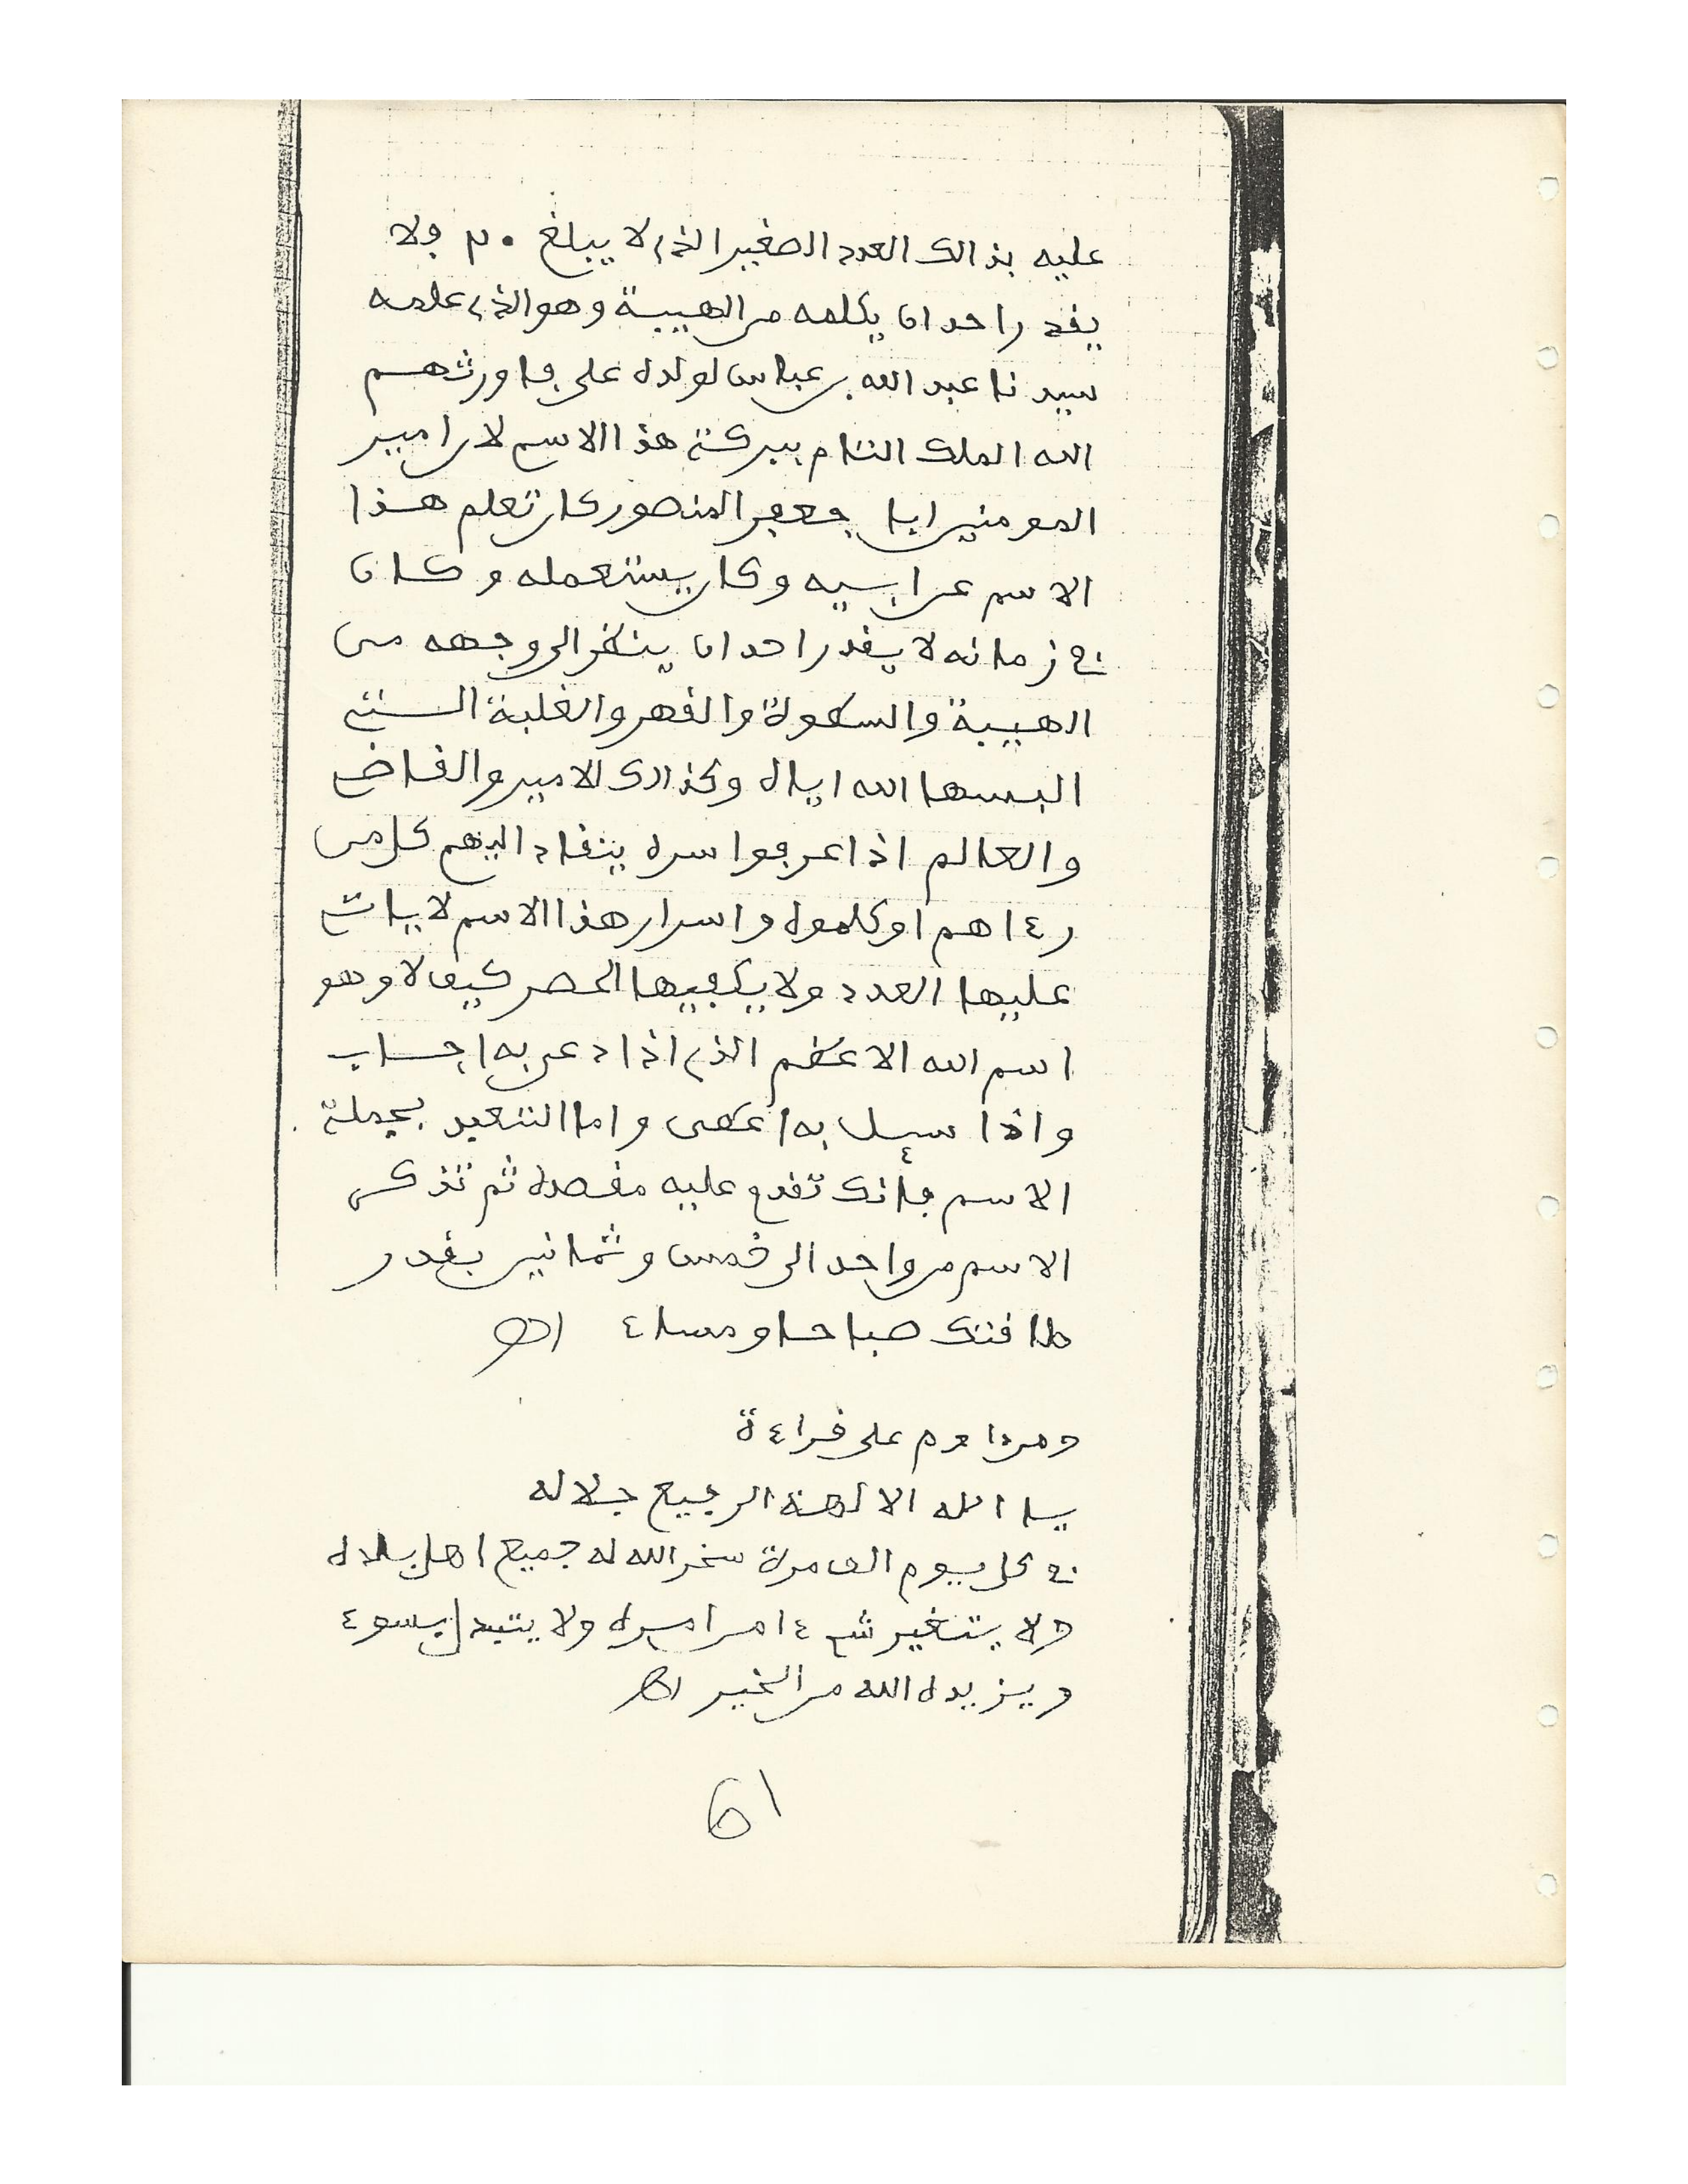 عليه بذالك العدد الصغير الذي لا يبلغ ولا
يقدر احد ان يكلمه من الهيبة وهو الذي علمه
سيدنا عبد الله بن عباس لولده علي فاورثهم
الله الملك التام ببركة هذا الاسم لان امير
المومنين ابا جعفر المنصور كان تعلم هذا
الاسم عن ابيه وكان يستعمله وكان
في زمانه لا يقدر احد ان ينظر الى وجهه من
الهيبة والسطوة والقهر والغلبة التي
البسها الله اياه وكذالك الامير والقاضي
والعالم اذا عرفوا سره ينقاد اليهم كل من
رءاهم او كلموه واسرار هذا الاسم لا ياتي
عليها العدد ولا يكفيها الحصر كيف لا وهو
اسم الله الاعظم الذي اذا دعي به اجاب
واذا سيل به اعطى واما التعبد بجملة
الاسم فانك تقدم عليه مقصده ثم تذكر
الاسم من واحد الى خمس وثمانين بقدر
طاقتك صباحا ومساء اهـ
ومن داوم على قراءة
يا الله الالهة الرفيع جلاله
في كل يوم الف مرة سخر الله له جميع اهل بلاده
ولا يتغير شيء امن اسره ولا يتبدل بسوء
ويزيده الله من الخير اهـ
61